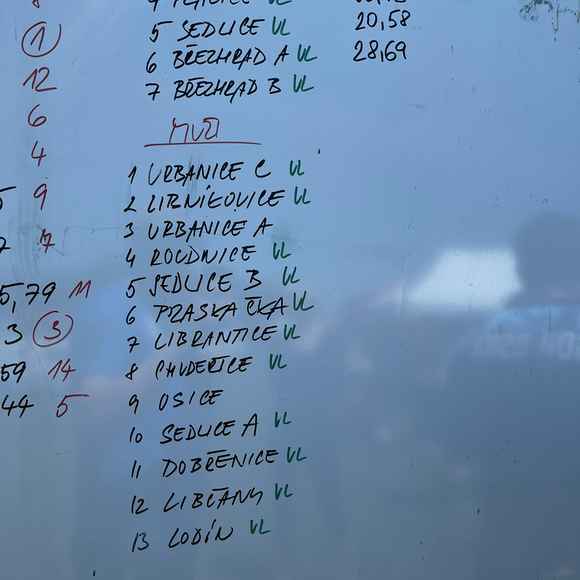 1
5 SEDLICE VL 20,58
12 6 BŘEZHRAD A VL 28,69
6 7 BŘEZHRAD B VL
4 MUŽI
1 URBANICE C VL
9 2 LIBNÍKOVICE VL
7 3 URBANICE A
4 ROUDNICE VL
5,79 11 5 SEDLICE B VL
3 3 6 PRASKAČKA VL
7 LIBRANTICE VL
59 14 8 CHUDEŘICE VL
44 5 9 OSICE
10 SEDLICE A VL
11 DOBŘENICE VL
12 LIBČANY VL
13 LODÍN VL